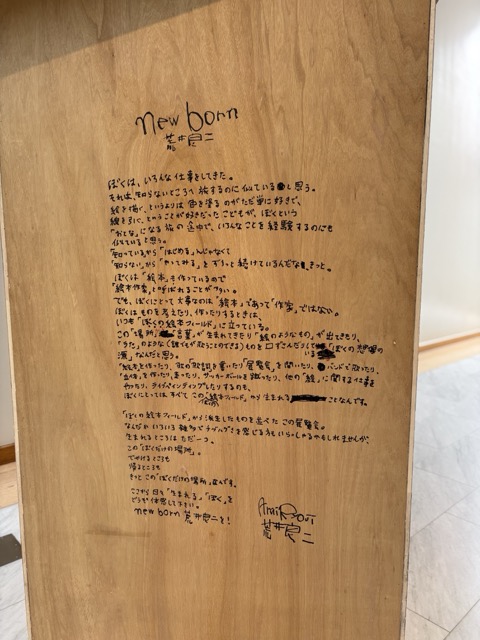 new born
荒井良二
ぼくは、いろんな仕事をしてきた。
それは、知らないところへ旅するのに似ているし思う。
絵を描く、というよりは色を塗るのがただ単に好きで、
線を引く、ということが好きだったこどもが、ぼくという
「おとな」になる旅の途中で、いろんなことを経験するのにも
似ていると思う。
「知っている」から「はじめる」んじゃなくて
「知らない」から「やってみる」をずっと続けているんだな、きっと。
ぼくは「絵本」を作っているので
「絵本作家」と呼ばれることが多い。
でも、ぼくにとって大事なのは「絵本」であって"作家"ではない。
ぼくはものを考えたり、作ったりするときは、
いつも「ぼくの絵本フィールド」に立っている。
この「場所」言葉が生まれてきたり「絵のようなもの」が出てきたり、
「うた」のような(誰もが歌うことのできる)ものを口ずさんだりして いる ぼくの想像の
源、なんだと思う。
「絵本を作ったり、歌の「歌詞を書いたり「展覧会」を開いたり、バンドで歌ったり、
「立体」を作ったり、サッカーボールを蹴ったり、他の「絵」に関する仕事を
やったり、ライブペインティングしたりするのも、
ぼくにとってはすべてこの「絵本フィールド」から生まれる ことなんです。
「ぼくの絵本フィールド」から派生したものを並べたこの展覧会。
なんだかいろいろ雑多でチグハグさを感じる方もいらっしゃるかもしれませんが、
生まれるところはただ一つ。
この「ぼくだけの場所」。
でかけるところも
帰るところも
きっとこの「ぼくだけの場所」なんです。
ここから日々「生まれる」「ぼく」を
どうぞ体感して下さい。
new born 荒井良二を!
荒井良二